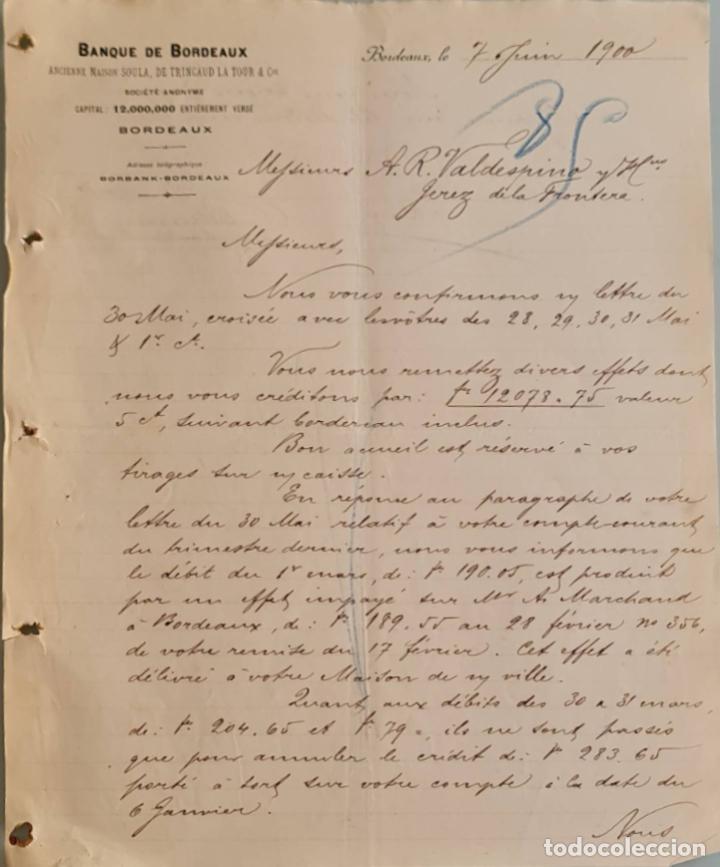 BANQUE DE BORDEAUX
ANCIENNE MAISON SOULA, DE TRINCAUD LA TOUR & Cie
SOCIÉTÉ ANONYME
CAPITAL: 12,000,000 ENTIÈREMENT VERSÉ
BORDEAUX
Adresse télégraphique
BORBANK-BORDEAUX
Bordeaux, le 7 Juin 1900
85
Messieurs A. R. Valdespino y Hnos
Jerez de la Frontera.
Messieurs,
Nous vous confirmons n/ lettre du
30 Mai, croisée avec les vôtres des 28, 29, 30, 31 Mai
& 1er ct.
Vous nous remettez divers effets dont
nous vous créditons par: Fr 12073.75 valeur
5 ct, suivant bordereau inclus.
Bon accueil est réservé à vos
tirages sur n/ caisse.
En réponse au paragraphe de votre
lettre du 30 Mai relatif à votre compte-courant
du trimestre dernier, nous vous informons que
le débit du 1er mars, de: Fr 190.05, est produit
par un effet impayé sur Mr A. Marchand
à Bordeaux, de: Fr 189.55 au 28 février no 356,
de votre remise du 17 février. Cet effet a été
délivré à votre Maison de n/ ville.
Quant aux débits des 30 a 31 mars,
de: Fr. 204.65 et Fr 79 =, ils ne sont passés
que pour annuler le crédit de: Fr 283.65
porté à tort sur votre compte à la date du
6 Janvier.
Nous
todocoleccion